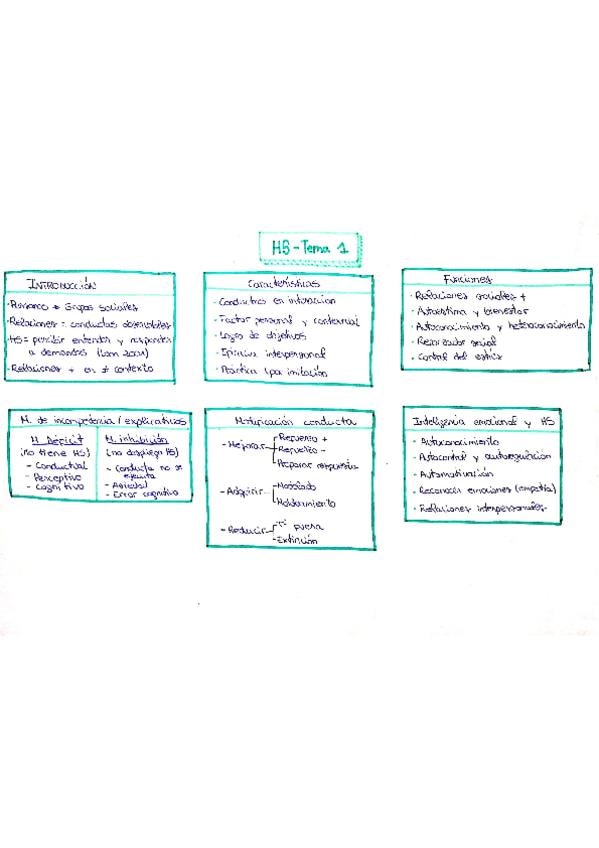 HS-Tema 1
INTRODUCCIÓN
Grupos sociales
- Relaciones = conductas observables
- HS = percibir, entender y responder
a demandas
- Relaciones + en ≠ contexto
Características
- Conductas en interacción
- Factor personal y contextual
- Logro de objetivos
interpersonal
- Práctica y por imitación
Funciones
- Relaciones sociales +
- Autoestima y bienestar
- Autoconocimiento y heteroconocimiento
- Reforzador social
- Control del estrés
M. de incompetencia / explicativos
M. Déficit
(no tiene HS)
- Conductual
- Perceptivo
- Cognitivo
M. inhibición
(no despliega HS)
- Conducta no se
ejecuta
- Ansiedad
- Error cognitivo
Modificación conducta
- Mejorar
Refuerzo +
Refuerzo -
Preparar respuesta
- Adquirir
Modelado
Moldeamiento
- Reducir
Extinción
Inteligencia emocional y HS
- Autoconocimiento
- Autocontrol y autorregulación
- Automotivación
- Reconocer emociones (empatía)
- Relaciones interpersonales